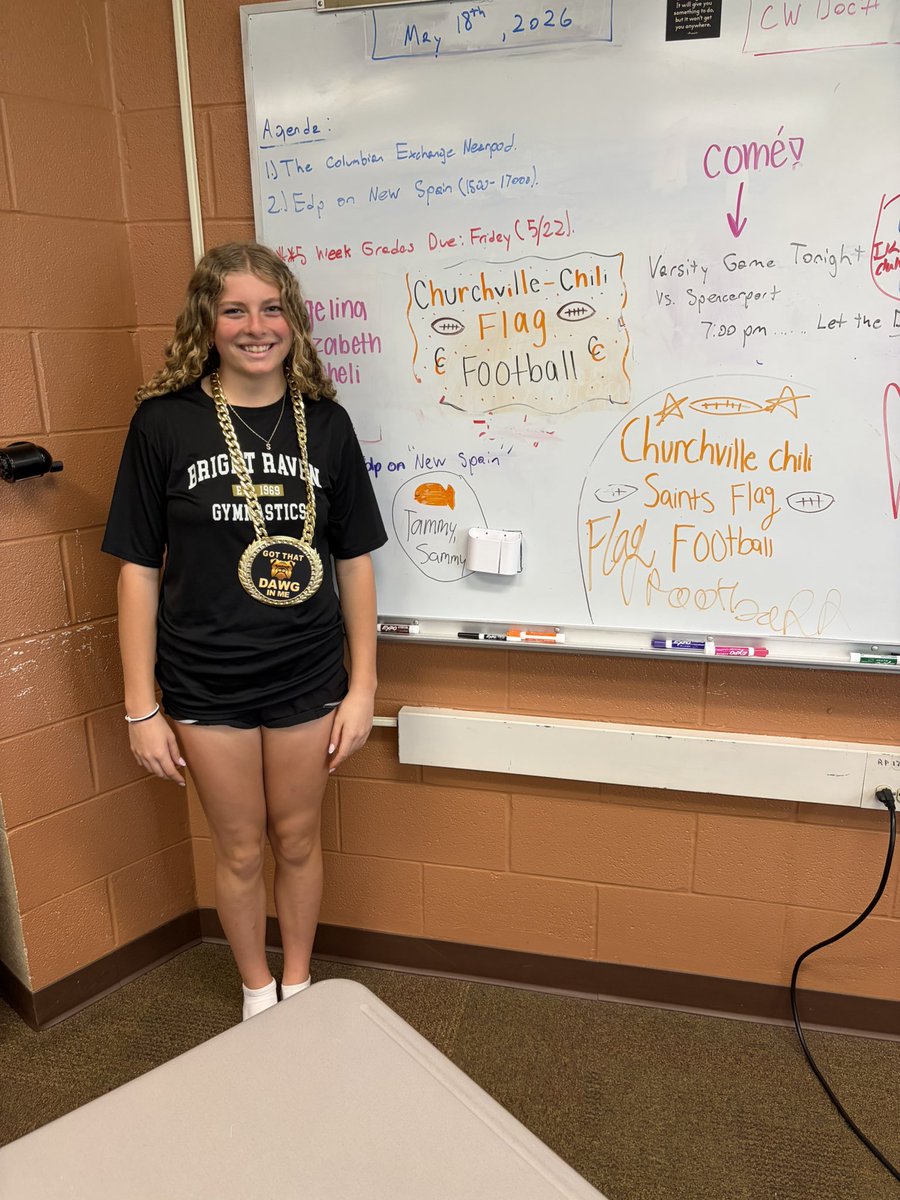 It will give you
something to do,
but it won't get
you anywhere.
May 18th, 2026
CW Doc#
Agenda:
1.) The Columbian Exchange Nearpod.
2.) Edp on New Spain (1500-1700s).
**5 Week Grades Due: Friday (5/22).
comé!
Varsity Game Tonight
Vs. Spencerport
7:00 pm ...... Let the D
gelina
zabeth
heli
Churchville-Chili
Flag
Football
C C
Edp on "New Spain"
Tammy,
Sammy
Churchville chili
Saints Flag
Flag Football
Football
BRIGHT RAVEN
EST. 1969
GYMNASTICS
GOT THAT
DAWG
IN ME
EXPO